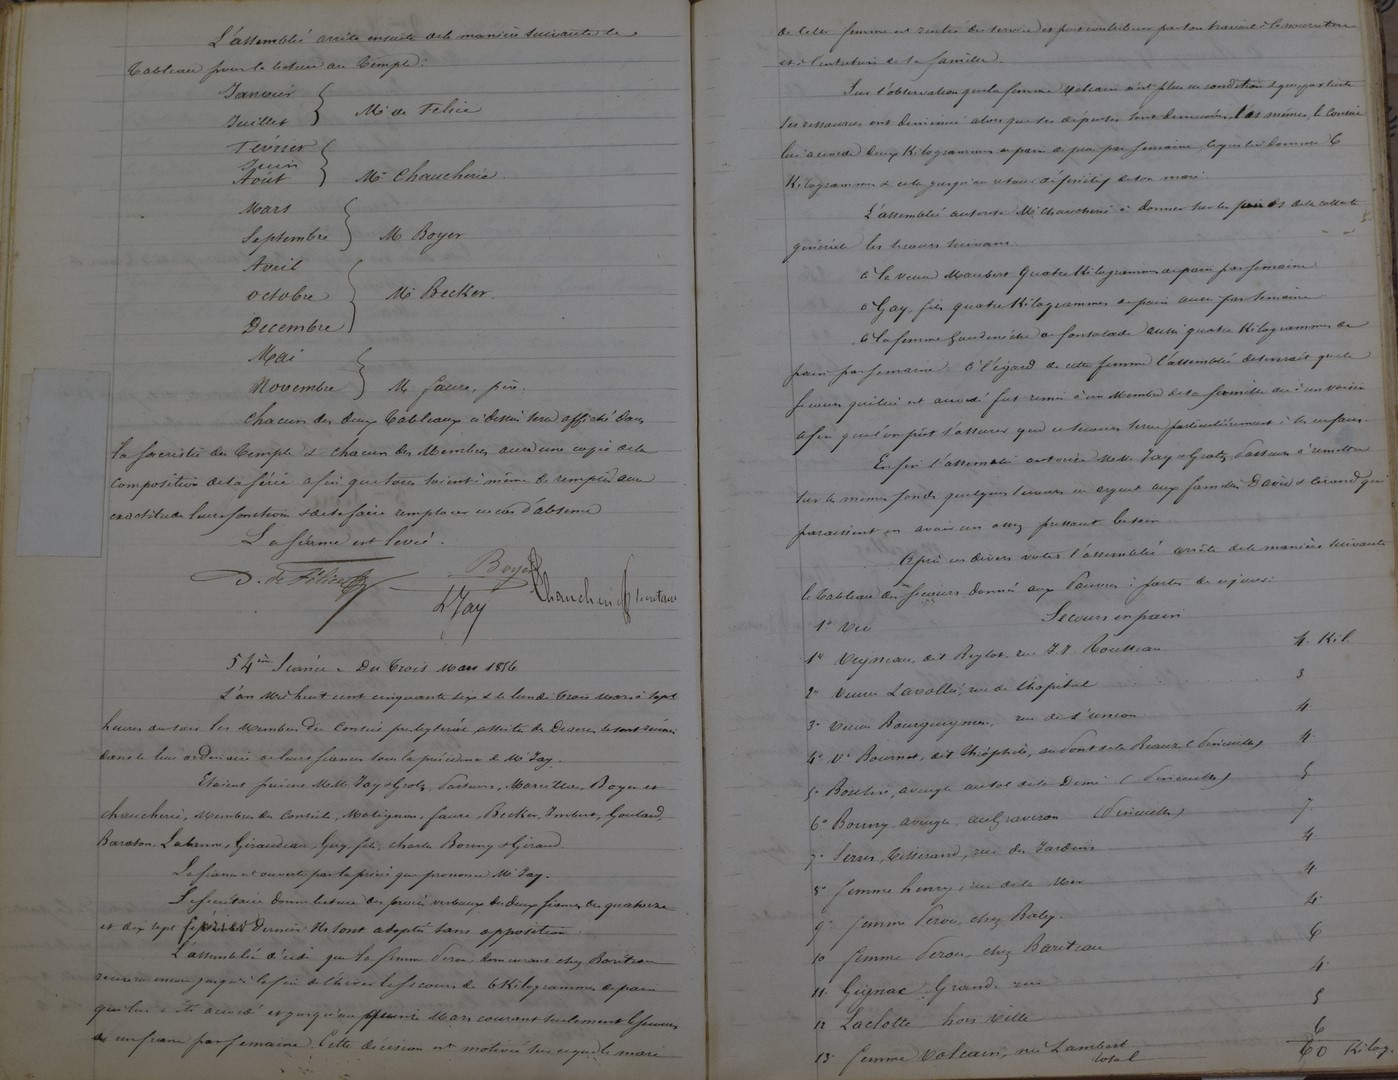 L'assemblée arrête ensuite de la manière suivante le
tableau pour la lecture au Temple:
Janvier
Juillet
Mr de Félice
Février
Juin
Août
Mr Chaucherie
Mars
Septembre
M Boyer
Avril
octobre
Decembre
Mr Becker.
Mai
Novembre
M. faure, père.
chacun des deux tableaux ci dessus sera affiché dans
la sacristie du Temple & chacun des Membres aura une copie de la
composition de la série afin que tous soient à même de remplir avec
exactitude leurs fonctions & de se faire remplacer en cas d'absence
La séance est levée.
D. de Félice
Boyer
L Jay
Chaucherie Secretaire
54eme Séance. Du trois Mars 1856
L'an mil huit cent cinquante six & le lundi trois Mars à sept
heures du soir les Membres du Conseil presbytéral, assisté de Diacres, se sont réunis
dans le lieu ordinaire de leurs séances sous la présidence de Mr Jay.
Etaient présens MM. Jay & Grotz, Pasteurs, Boyer et
chaucherie, Membres du Conseil, Matignon, faure, Becker, Imbert, Goulard,
Baraton, Giraudeau, Guy, fils, charles Bonny & Gérard.
La séance est ouverte par la prière que prononce Mr Jay.
Le Secrétaire donne lecture des procès verbaux des deux séances des quatorze
et dix sept février dernier. Ils sont adoptés sans opposition.
L'assemblée décide que la femme Perou demeurant chez Bariteau
recevra encore jusqu'à la fin de l'hiver le secours de 6 Kilogrammes de pain
qui lui a été accordé et jusqu'au quinze Mars courant seulement le secours
de un franc par semaine. Cette décision est motivée sur ce que le mari
de cette femme est rentré du service et peut contribuer par son travail à la nourriture
et à l'entretien de la famille.
Sur l'observation que la femme Valcain n'est plus en condition & que par suite
ses ressources ont diminué alors que ses dépenses sont demeurées les mêmes, le conseil
lui accorde deux Kilogrammes de pain de plus par semaine, ce qui lui donne 6
Kilogrammes & cela jusqu'au retour définitif de son mari.
L'assemblée autorise Mr Chaucherie à donner sur les fonds de la collecte
générale les secours suivans.
à la veuve Maubert quatre Kilogrammes de pain par semaine
à Gay, fils quatre Kilogrammes de pain aussi par semaine
à la femme aussi quatre Kilogrammes de
pain par semaine. à l'égard de cette femme l'assemblée que le
secours qui lui est accordé fut remis à un Membre de la famille ou à un voisin
afin que l'on pût s'assurer que ce secours serve particulièrement à les enfans.
Enfin l'assemblée autorise MM. Jay & Grotz, Pasteurs à remettre
sur les mêmes fonds quelques secours en argent aux familles David & Gérard qui
paraissent en avoir un assez pressant besoin.
Après ces divers votes l'assemblée arrête de la manière suivante
le tableau des secours donnés aux Pauvres à partir de ce jour:
Secours en pain
1º Veyneau, dit rue J. J. Rousseau 4. Kil.
2º Veuve Lavallée, rue de l'hôpital 3
3º Veuve Bourguignon, rue de l'union 4
4º Ve Bournet, dit Théophile, au Pont de la 4.
5º aveugle 5
6º Bonny aveugle, au Graveron 7.
7º Serres, Tisserand, rue des Jardins 4.
8º femme henry, rue de la Mer 4
9º femme Perou, chez 4
10 femme Perou, chez Bariteau 6
11 Gignac Grande rue 4.
12 Laclotte hors ville 5
13º femme Valcain, née Lambert 6
total 60 Kilog.